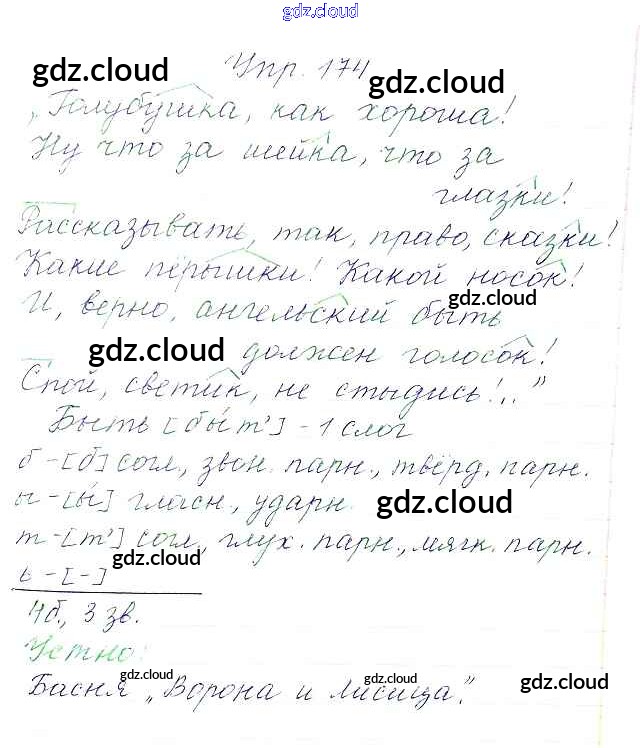 gdz.cloud
gdz.cloud
Упр. 174
gdz.cloud
„Голубушка, как хороша!
Ну что за шейка, что за
глазки!
Рассказывать, так, право, сказки!
Какие пёрышки! Какой носок!
gdz.cloud
И, верно, ангельский быть
gdz.cloud
должен голосок!
Спой, светик, не стыдись!.."
Быть [бы́т'] - 1 слог
б - [б] согл., звон. парн., твёрд. парн.
ы - [ы́] гласн., ударн.
gdz.cloud
т - [т'] согл., глух. парн., мягк. парн.
gdz.cloud
ь - [-]
4б., 3 зв.
Устно:
gdz.cloud
gdz.cloud
gdz.cloud
Басня „Ворона и Лисица".